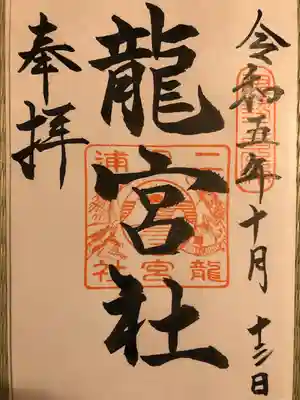 令和五年十月十三日
龍宮社
二見浦
龍宮社
奉拝